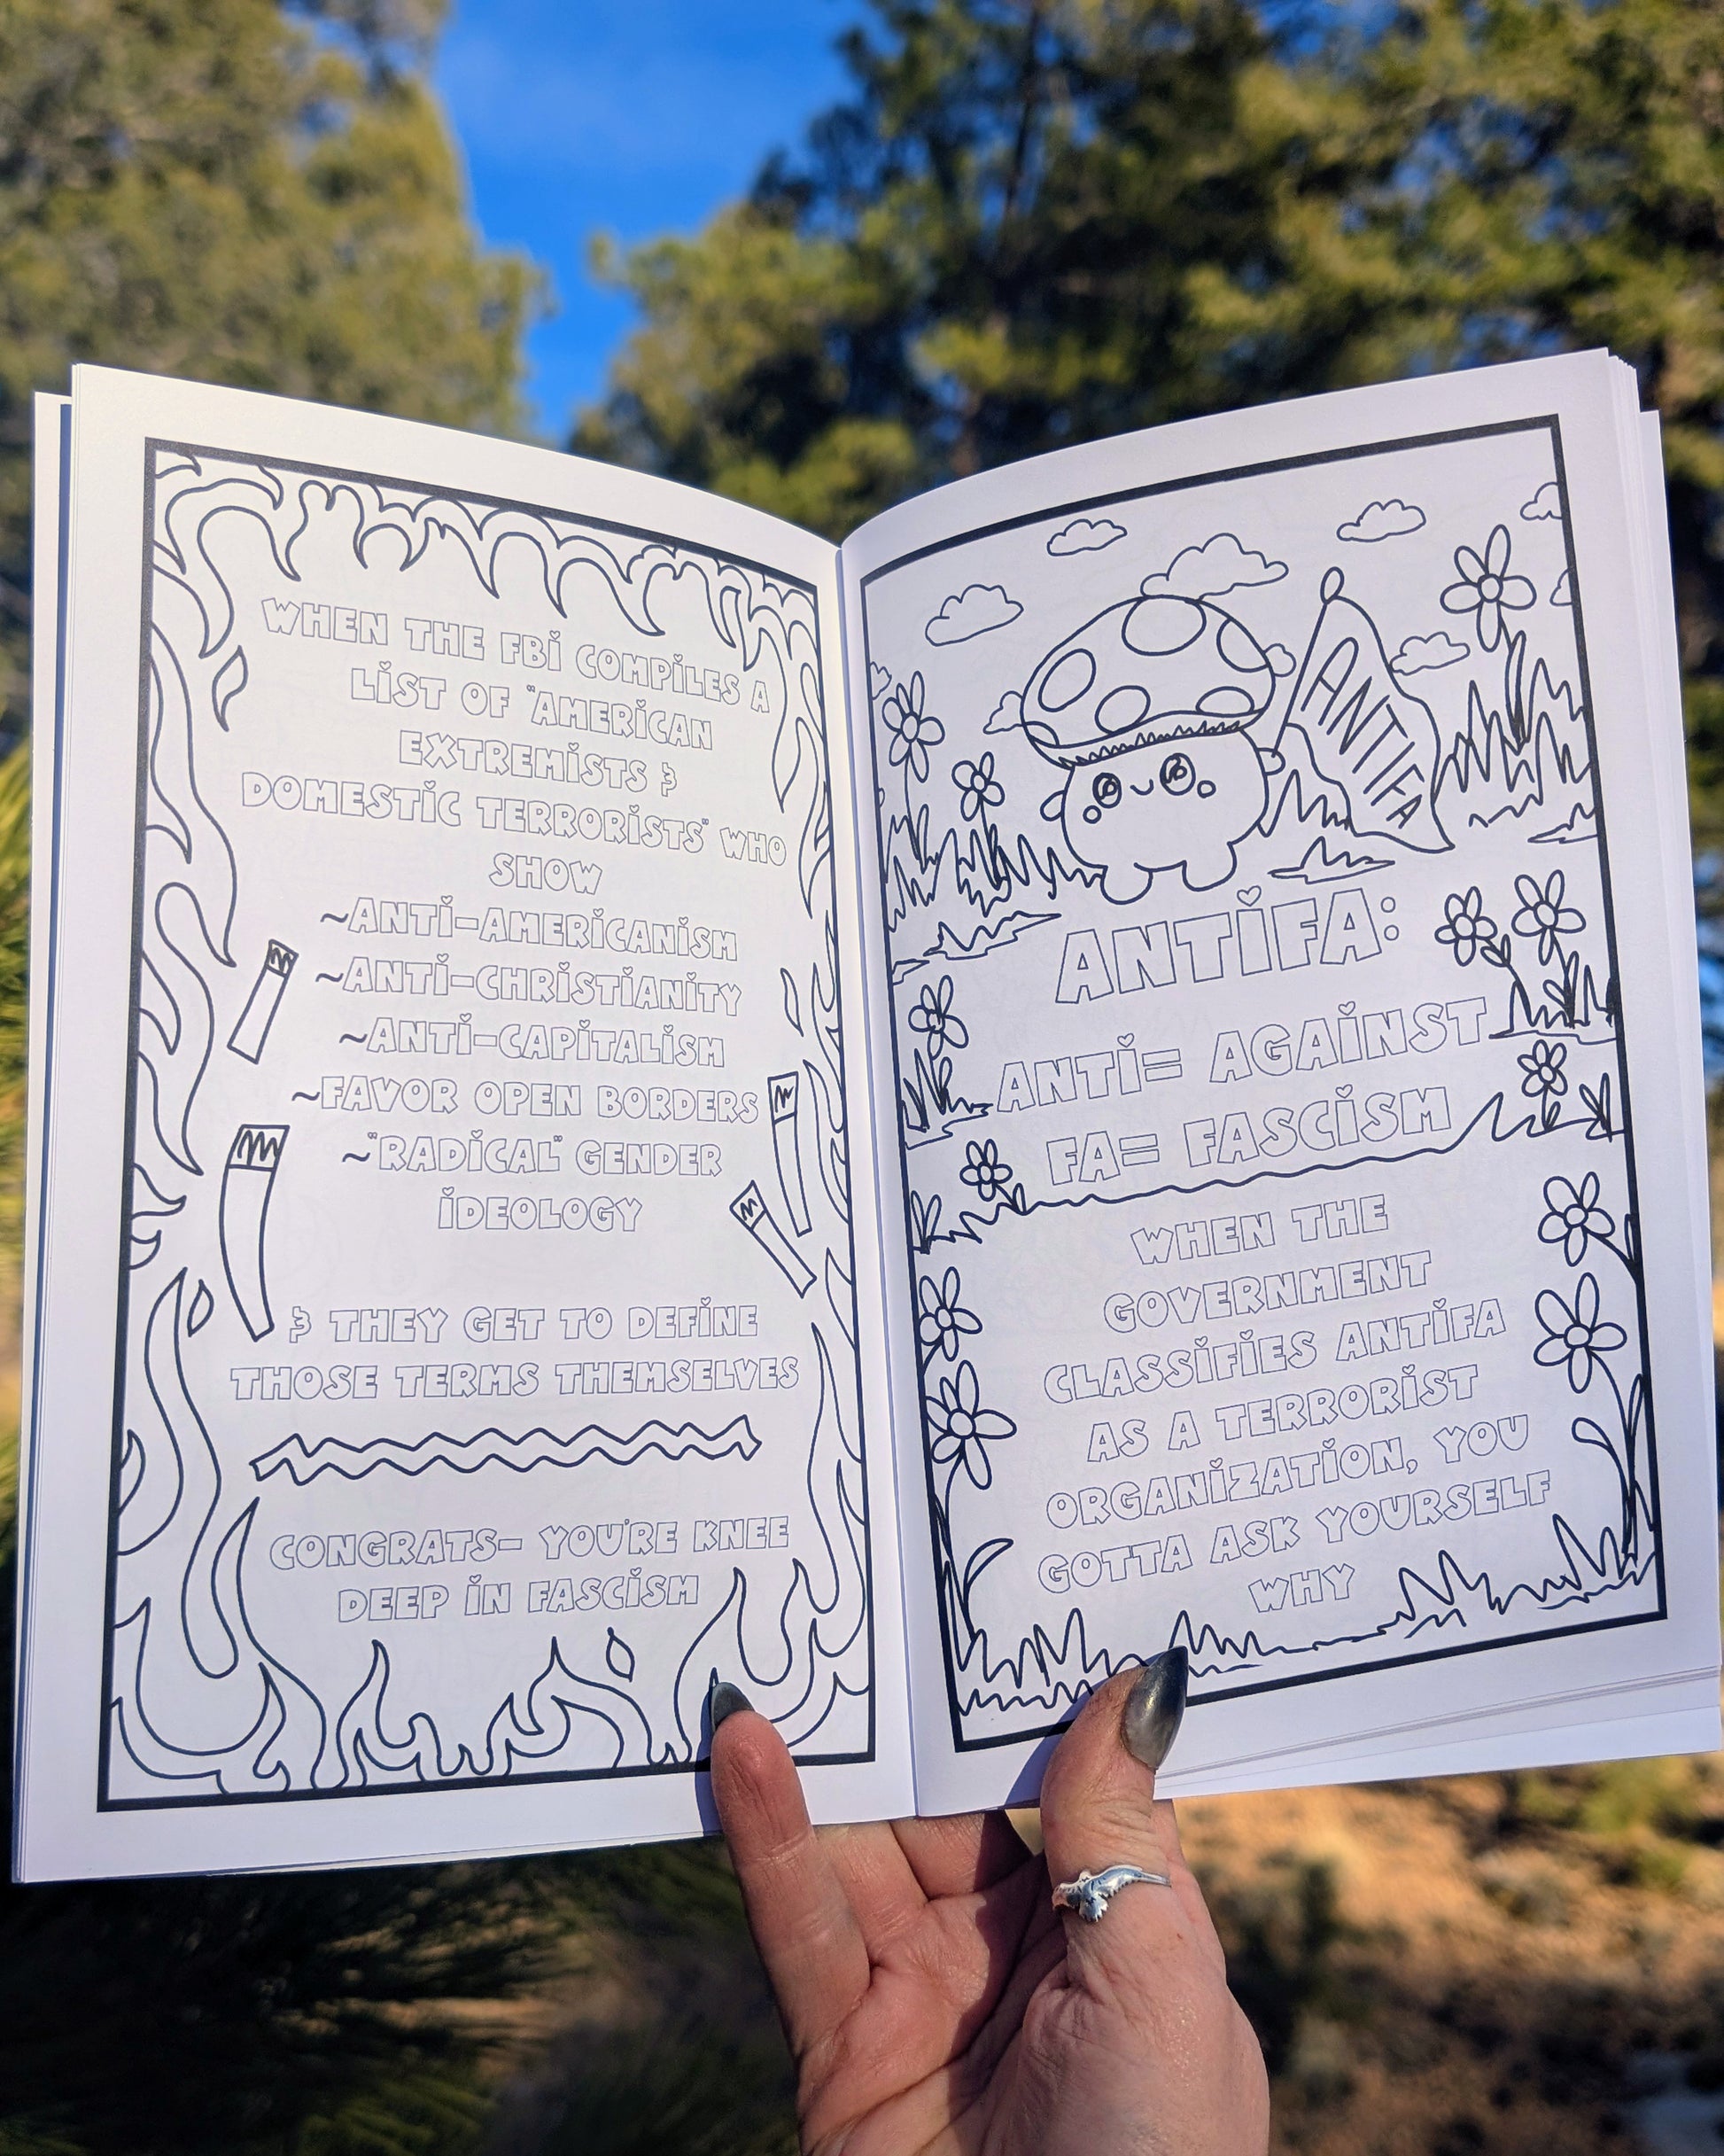 WHEN THE FBI COMPILES A
LIST OF "AMERICAN
EXTREMISTS &
DOMESTIC TERRORISTS" WHO
SHOW
~ANTI-AMERICANISM
~ANTI-CHRISTIANITY
~ANTI-CAPITALISM
~FAVOR OPEN BORDERS
~"RADICAL" GENDER
IDEOLOGY
& THEY GET TO DEFINE
THOSE TERMS THEMSELVES
CONGRATS- YOU'RE KNEE
DEEP IN FASCISM
ANTIFA
ANTIFA:
ANTI= AGAINST
FA= FASCISM
WHEN THE
GOVERNMENT
CLASSIFIES ANTIFA
AS A TERRORIST
ORGANIZATION, YOU
GOTTA ASK YOURSELF
WHY